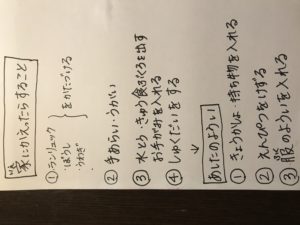 家にかえったらすること
① ランリュック
・ぼうし
・うわぎ
}をかたづける
② 手あらい・うがい
③ 水とう・きゅう食ぶくろを出す
お手がみを入れる
④ しゅくだいをする
↓
あしたのようい
① きょうかしょ・持ち物を入れる
② えんぴつをけずる
③ 服のよういを入れる